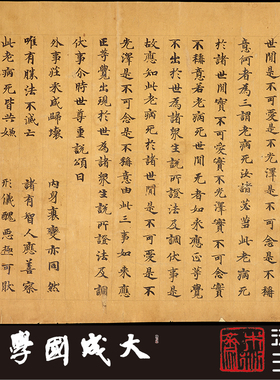 世間是不可愛是不光澤是不可念是不
意何者為三謂老病死汝諸苾芻此老病死
於諸世間實不可愛實不光澤實不可念實
不稱意若老病死世間无者如來應正等覺
不出於世為諸眾生說所證法及調伏事是
故應知此老病死於諸世間是不可愛是不
光澤是不可念是不稱意由此三事如來應
正等覺出現於世為諸眾生說所證法及調
伏事尒時世尊重說頌曰
外事莊彩咸歸壞 內身衰變亦同然
唯有勝法不滅亡 諸有智人應善察
此老病死皆共嫌 形儀醜惡極可猒
大成國學